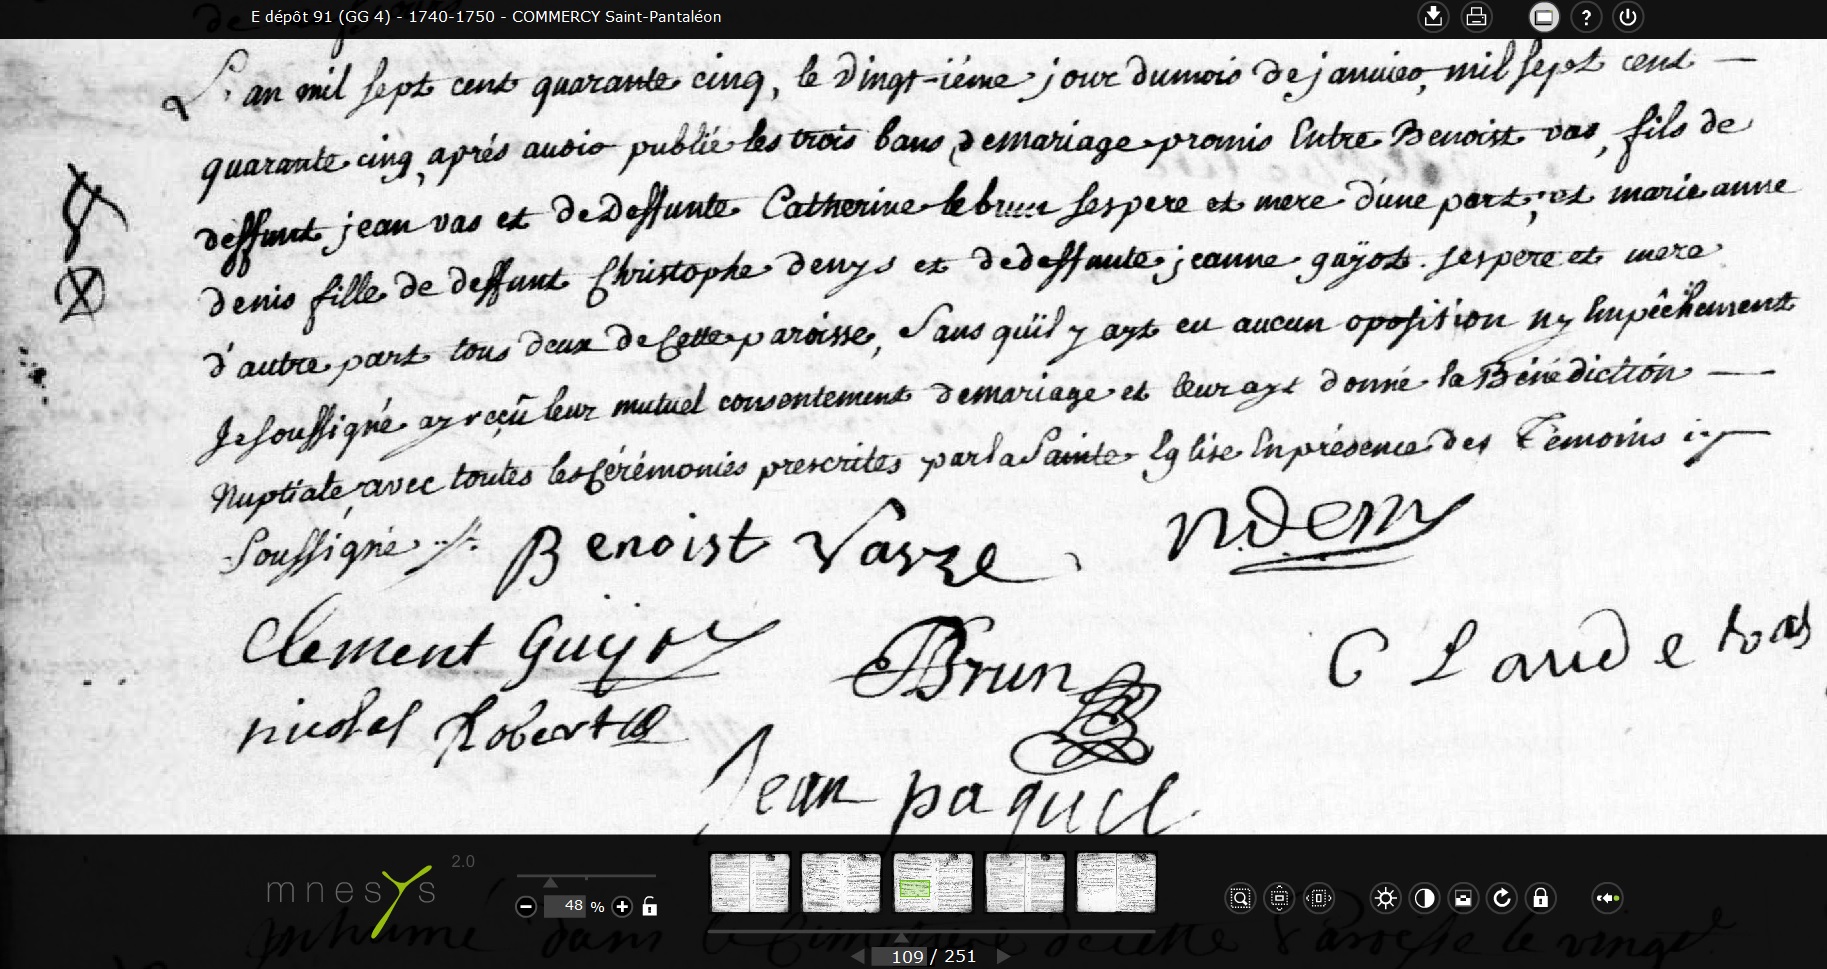 E dépôt 91 (GG 4) - 1740-1750 - COMMERCY Saint-Pantaléon
L'an mil sept cent quarante cinq, le vingt-iéme jour du mois de janvier, mil sept cent
quarante cinq, aprés avoir publié les trois bans de mariage promis Entre Benoist vas, fils de
deffunt jean vas et de Deffunte Catherine lebrun ses pere et mere d'une part; et marie anne
denis fille de deffunt Christophe denys et de deffunte jeanne guÿot. ses pere et mere
d'autre part tous deux de Cette paroisse, Sans qu'il y ayt eu aucun oposition ny Empêchement
Je soussigné ay reçû leur mutuel consentement de mariage et leur ayt donné la Bénédiction
Nuptiale, avec toutes les Cérémonies prescrites par la Sainte Eglise En présence des Témoins
Soussigné
Benoist Vasze
N.Deny
Clement Guyot
Brun
CLaude
nicolas Robert
Jean paquel
mnesys 2.0
48 %
109 / 251